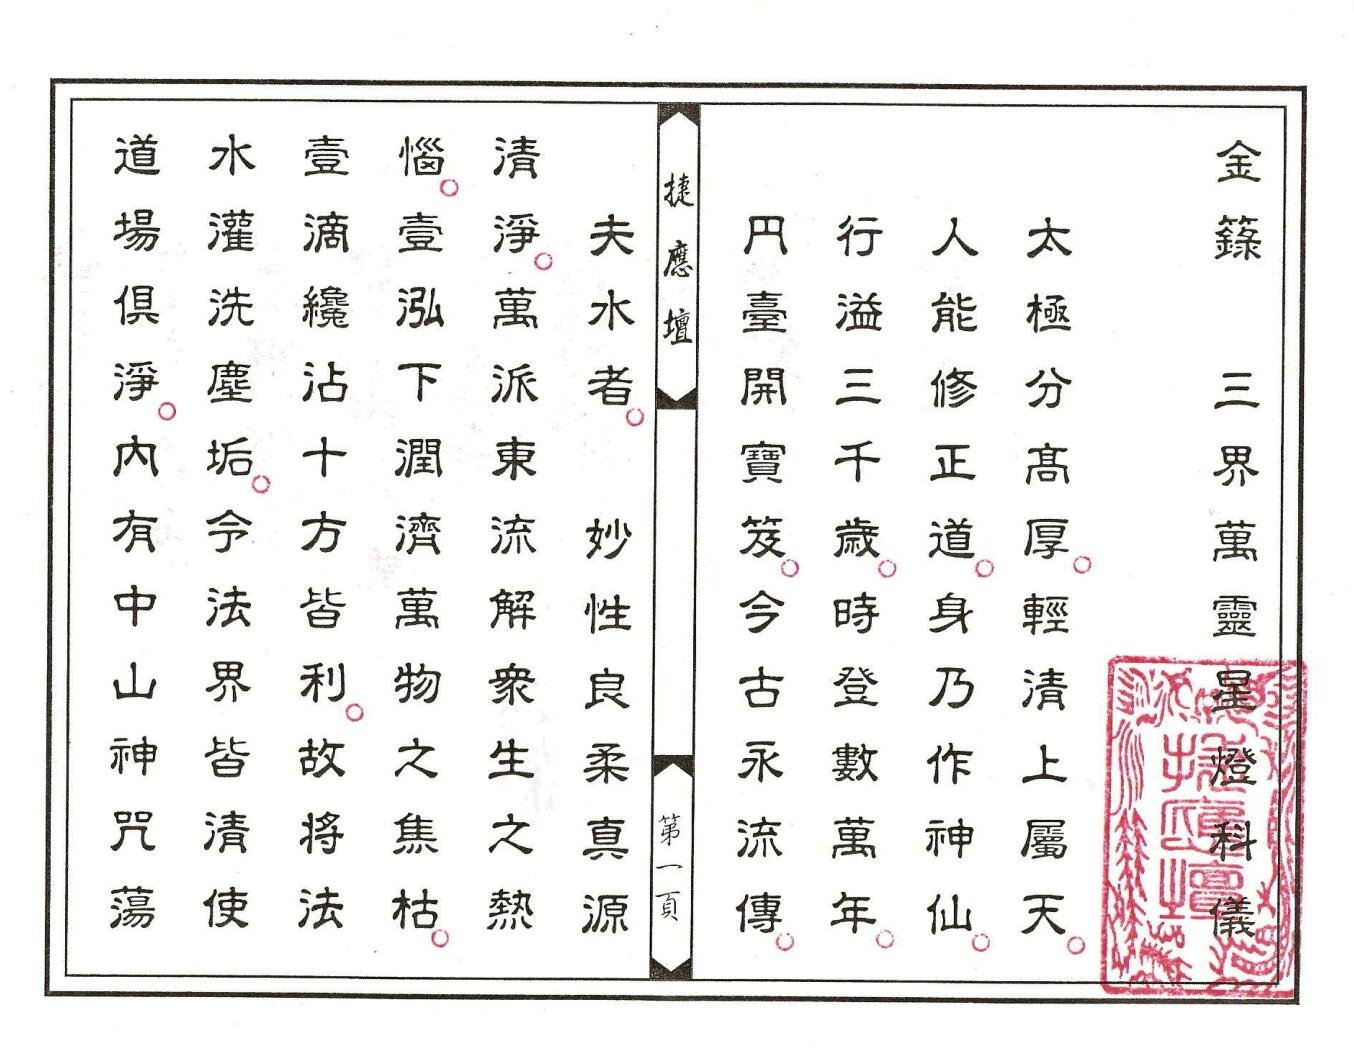 金籙　三界萬靈星燈科儀
太極分髙厚。輕清上屬天。
人能修正道。身乃作神仙。
行溢三千歲。時登數萬年。
円臺開寶笈。今古永流傳。
捷應壇
第一頁
夫水者。　妙性良柔真源
清淨。萬派東流解衆生之熱
惱。壹泓下潤濟萬物之焦枯。
壹滴纔沾十方皆利。故將法
水灌洗塵垢。令法界皆清使
道場俱淨。內有中山神咒蕩
捷應壇